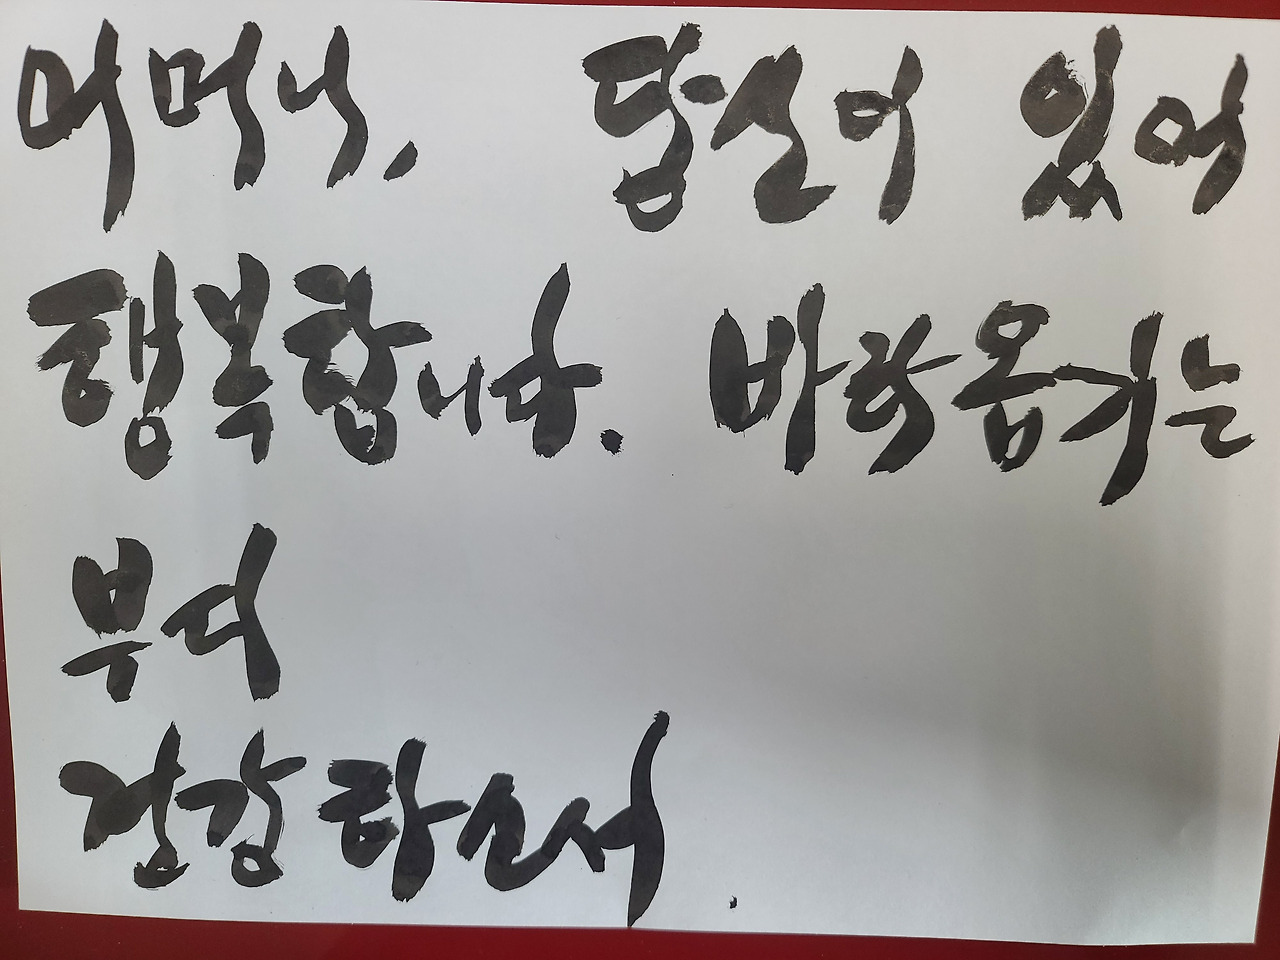 어머니, 당신이 있어
행복합니다. 바라옵기는
부디
건강하소서.